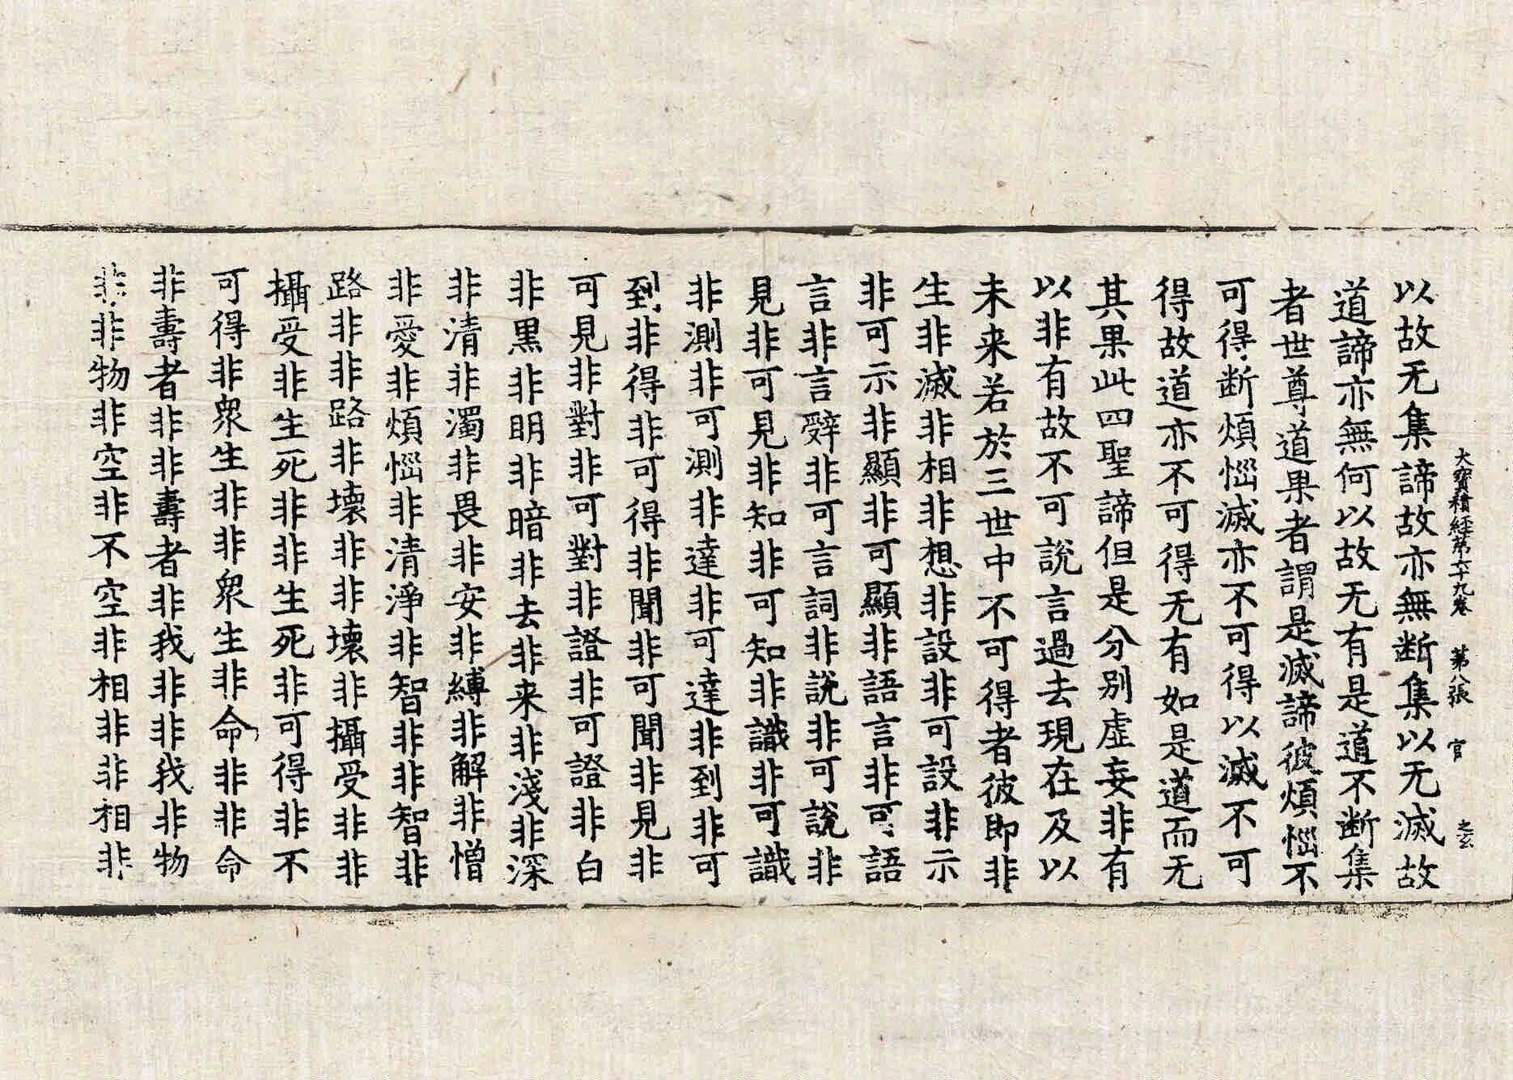 大寶積經第六十九卷 第八張 官
以故无集諦故亦無断集以无滅故
道諦亦無何以故无有是道不断集
者世尊道果者謂是滅諦彼煩惱不
可得断煩惱滅亦不可得以滅不可
得故道亦不可得无有如是道而无
其果此四聖諦但是分别虛妄非有
以非有故不可說言過去現在及以
未来若於三世中不可得者彼即非
生非滅非相非想非設非可設非示
非可示非顯非可顯非語言非可語
言非言辤非可言詞非說非可說非
見非可見非知非可知非識非可識
非測非可測非達非可達非到非可
到非得非可得非聞非可聞非見非
可見非對非可對非證非可證非白
非黑非明非暗非去非来非淺非深
非清非濁非畏非安非縛非解非憎
非愛非煩惱非清淨非智非非智非
路非非路非壊非非壊非攝受非非
攝受非生死非非生死非可得非不
可得非衆生非非衆生非命非非命
非壽者非非壽者非我非非我非物
非非物非空非不空非相非非相非